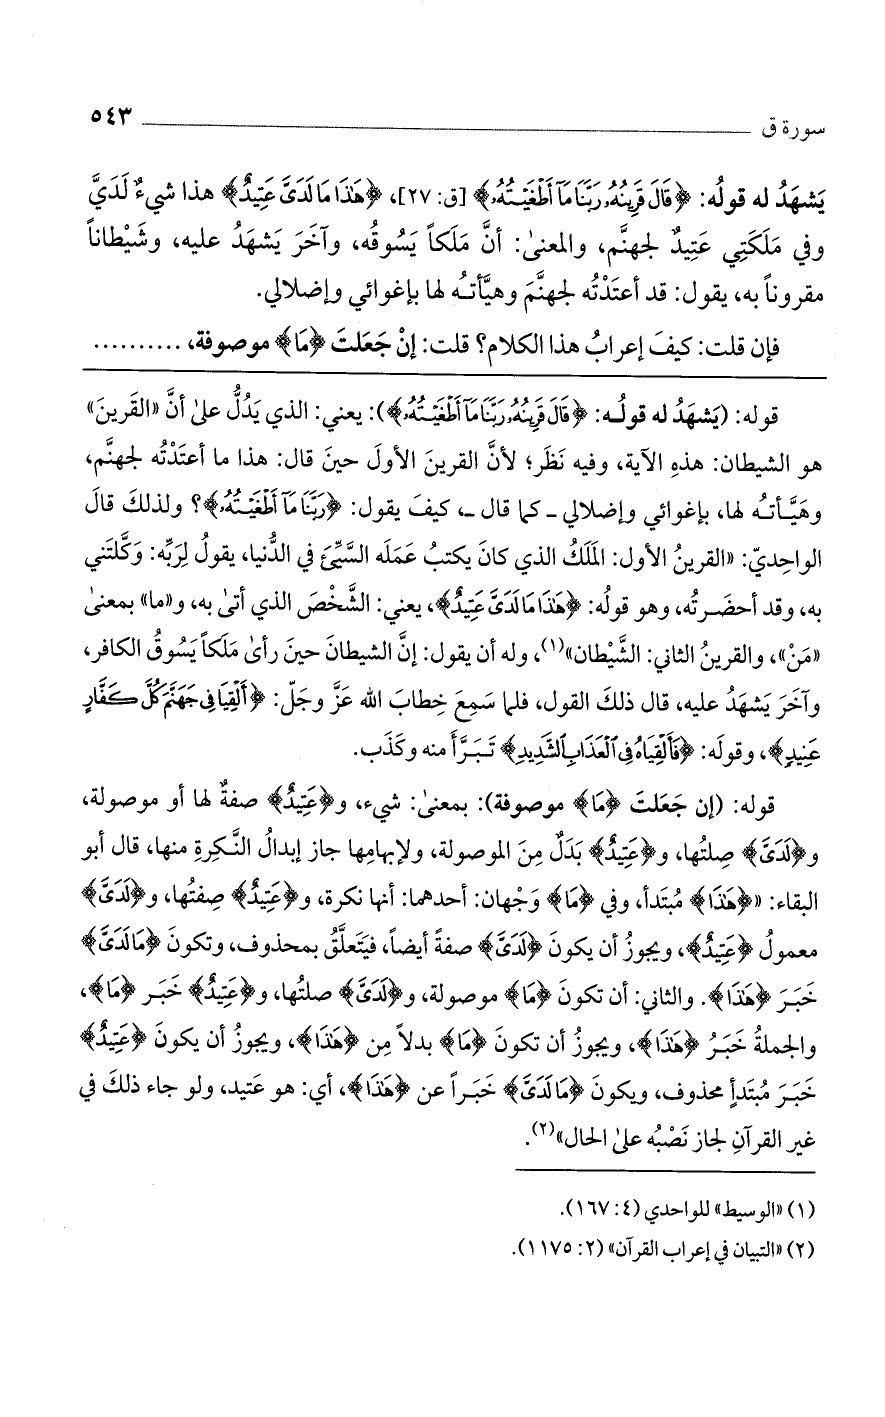 سورة ق ٥٤٣
يَشهَدُ له قولُه: ﴿قَالَ قَرِينُهُۥ رَبَّنَا مَآ أَطْغَيْتُهُۥ﴾ [ق: ٢٧]، ﴿هَٰذَا مَا لَدَىَّ عَتِيدٌ﴾ هذا شيءٌ لَدَيَّ
وفي مَلَكَتِي عَتِيدٌ لجهنَّم، والمعنىٰ: أنَّ مَلَكاً يَسُوقُه، وآخَرَ يَشهَدُ عليه، وشَيْطاناً
مقروناً به، يقول: قد أعتَدْتُه لجهنَّمَ وهيَّأتُه لها بإغوائي وإضلالي.
فإن قلت: كيفَ إعرابُ هذا الكلام؟ قلت: إنْ جَعَلتَ ﴿مَا﴾ موصوفة، ..........
قوله: (يَشهَدُ له قولُه: ﴿قَالَ قَرِينُهُۥ رَبَّنَا مَآ أَطْغَيْتُهُۥ﴾): يعني: الذي يَدُلُّ علىٰ أنَّ «القَرينَ»
هو الشيطان: هذهِ الآية، وفيه نَظَر؛ لأنَّ القرينَ الأولَ حينَ قال: هذا ما أعتَدْتُه لجهنَّم،
وهَيَّأتُه لها، بإغوائي وإضلالي ـ كما قال ـ، كيفَ يقول: ﴿رَبَّنَا مَآ أَطْغَيْتُهُۥ﴾؟ ولذلكَ قالَ
الواحِديّ: «القرينُ الأول: المَلَكُ الذي كانَ يكتبُ عَمَلَه السَّيِّئَ في الدُّنيا، يقولُ لِرَبِّه: وَكَّلتَني
به، وقد أحضَرتُه، وهو قولُه: ﴿هَٰذَا مَا لَدَىَّ عَتِيدٌ﴾، يعني: الشَّخْصَ الذي أتىٰ به، و«ما» بمعنىٰ
«مَنْ»، والقرينُ الثاني: الشَّيْطان»(١)، وله أن يقول: إنَّ الشيطانَ حينَ رأىٰ مَلَكاً يَسُوقُ الكافر،
وآخَرَ يَشهَدُ عليه، قال ذلكَ القول، فلما سَمِعَ خِطابَ الله عَزَّ وجَلّ: ﴿أَلْقِيَا فِى جَهَنَّمَ كُلَّ كَفَّارٍ
عَنِيدٍ﴾، وقولَه: ﴿فَأَلْقِيَاهُ فِى ٱلْعَذَابِ ٱلشَّدِيدِ﴾ تَبَرَّأَ منه وكَذَب.
قوله: (إن جَعَلتَ ﴿مَا﴾ موصوفة): بمعنىٰ: شيء، و﴿عَتِيدٌ﴾ صفةٌ لها أو موصولة،
و﴿لَدَىَّ﴾ صِلتُها، و﴿عَتِيدٌ﴾ بَدَلٌ مِنَ الموصولة، ولإبهامِها جاز إبدالُ النَّكِرةِ منها، قال أبو
البقاء: «﴿هَٰذَا﴾ مُبتَدأ، وفي ﴿مَا﴾ وَجْهان: أحدهما: أنها نكرة، و﴿عَتِيدٌ﴾ صِفتُها، و﴿لَدَىَّ﴾
معمول ﴿عَتِيدٌ﴾، ويجوزُ أن يكونَ ﴿لَدَىَّ﴾ صفةً أيضاً، فيَتَعلَّقُ بمحذوف، وتكونَ ﴿مَا لَدَىَّ﴾
خَبَرَ ﴿هَٰذَا﴾. والثاني: أن تكونَ ﴿مَا﴾ موصولة، و﴿لَدَىَّ﴾ صلتُها، و﴿عَتِيدٌ﴾ خَبَر ﴿مَا﴾،
والجملةُ خَبَرُ ﴿هَٰذَا﴾، ويجوزُ أن تكونَ ﴿مَا﴾ بدلاً مِن ﴿هَٰذَا﴾، ويجوزُ أن يكونَ ﴿عَتِيدٌ﴾
خَبَرَ مُبتَدأٍ محذوف، ويكونَ ﴿مَا لَدَىَّ﴾ خَبَراً عن ﴿هَٰذَا﴾، أي: هو عَتيد، ولو جاء ذلكَ في
غير القرآنِ لجاز نَصْبُه علىٰ الحال»(٢).
(١) «الوسيط» للواحدي (٤: ١٦٧).
(٢) «التبيان في إعراب القرآن» (٢: ١١٧٥).